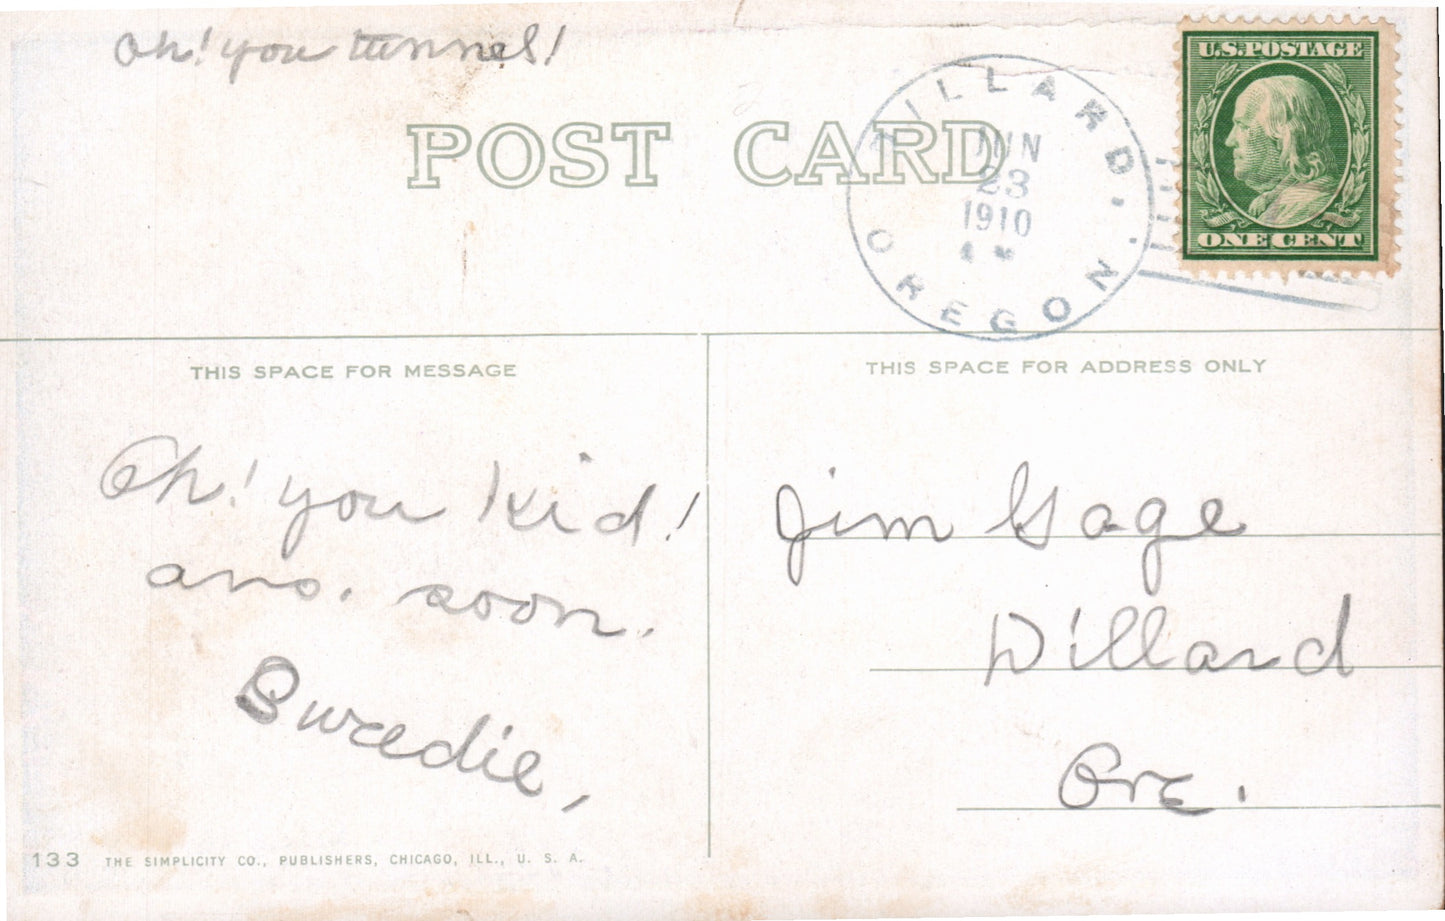 Oh! you tunnel!
POST CARD
DILLARD,
JUN
23
1910
OREGON
U.S. POSTAGE
ONE CENT
THIS SPACE FOR MESSAGE
THIS SPACE FOR ADDRESS ONLY
Oh! you Kid!
ans. soon.
Sweedie,
Jim Gage
Dillard
Ore.
133 THE SIMPLICITY CO., PUBLISHERS, CHICAGO, ILL., U. S. A.